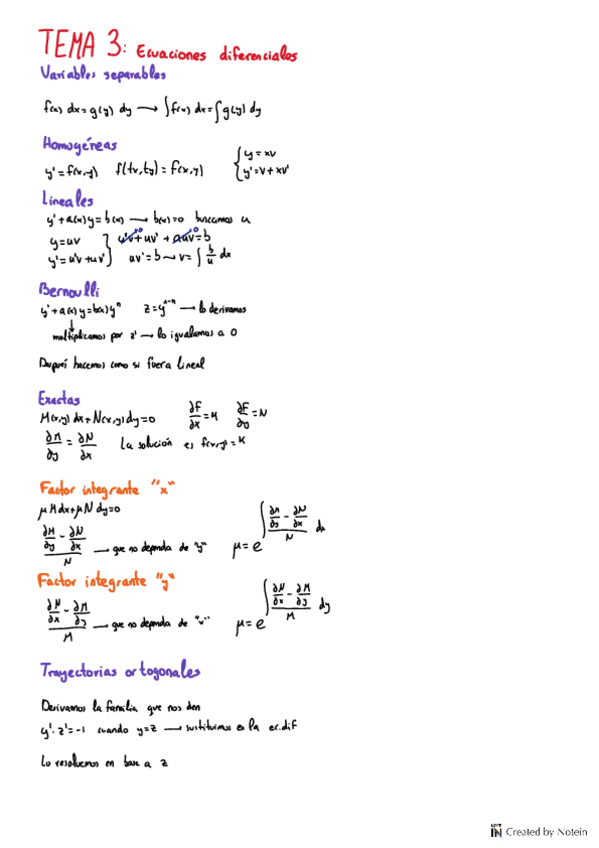 TEMA 3: Ecuaciones diferenciales
Variables separables
f(x) dx = g(y) dy → ∫f(x) dx = ∫g(y) dy
Homogéneas
y' = f(x,y) f(tx,ty) = f(x,y) { y = xv
y' = v + xv'
Lineales
y' + a(x)y = b(x) → b(x)=0 buscamos u
y = uv } u'v + uv' + auv = b
y' = u'v + uv' uv' = b → v = ∫ b/u dx
Bernoulli
y' + a(x)y = b(x)y^n z = y^1-n → lo derivamos
↓
multiplicamos por z' → lo igualamos a 0
Después hacemos como si fuera lineal
Exactas
M(x,y) dx + N(x,y) dy = 0 ∂F/∂x = M ∂F/∂y = N
∂M/∂y = ∂N/∂x La solución es f(x,y) = K
Factor integrante "x"
μ M dx + μ N dy = 0
(∂M/∂y - ∂N/∂x)/N → que no dependa de "y" μ = e^∫ (∂M/∂y - ∂N/∂x)/N dx
Factor integrante "y"
(∂N/∂x - ∂M/∂y)/M → que no dependa de "x" μ = e^∫ (∂N/∂x - ∂M/∂y)/M dy
Trayectorias ortogonales
Derivamos la familia que nos den
y'·z' = -1 cuando y = z → sustituimos en la ec. dif
Lo resolvemos en base a z
NOTE IN Created by Notein